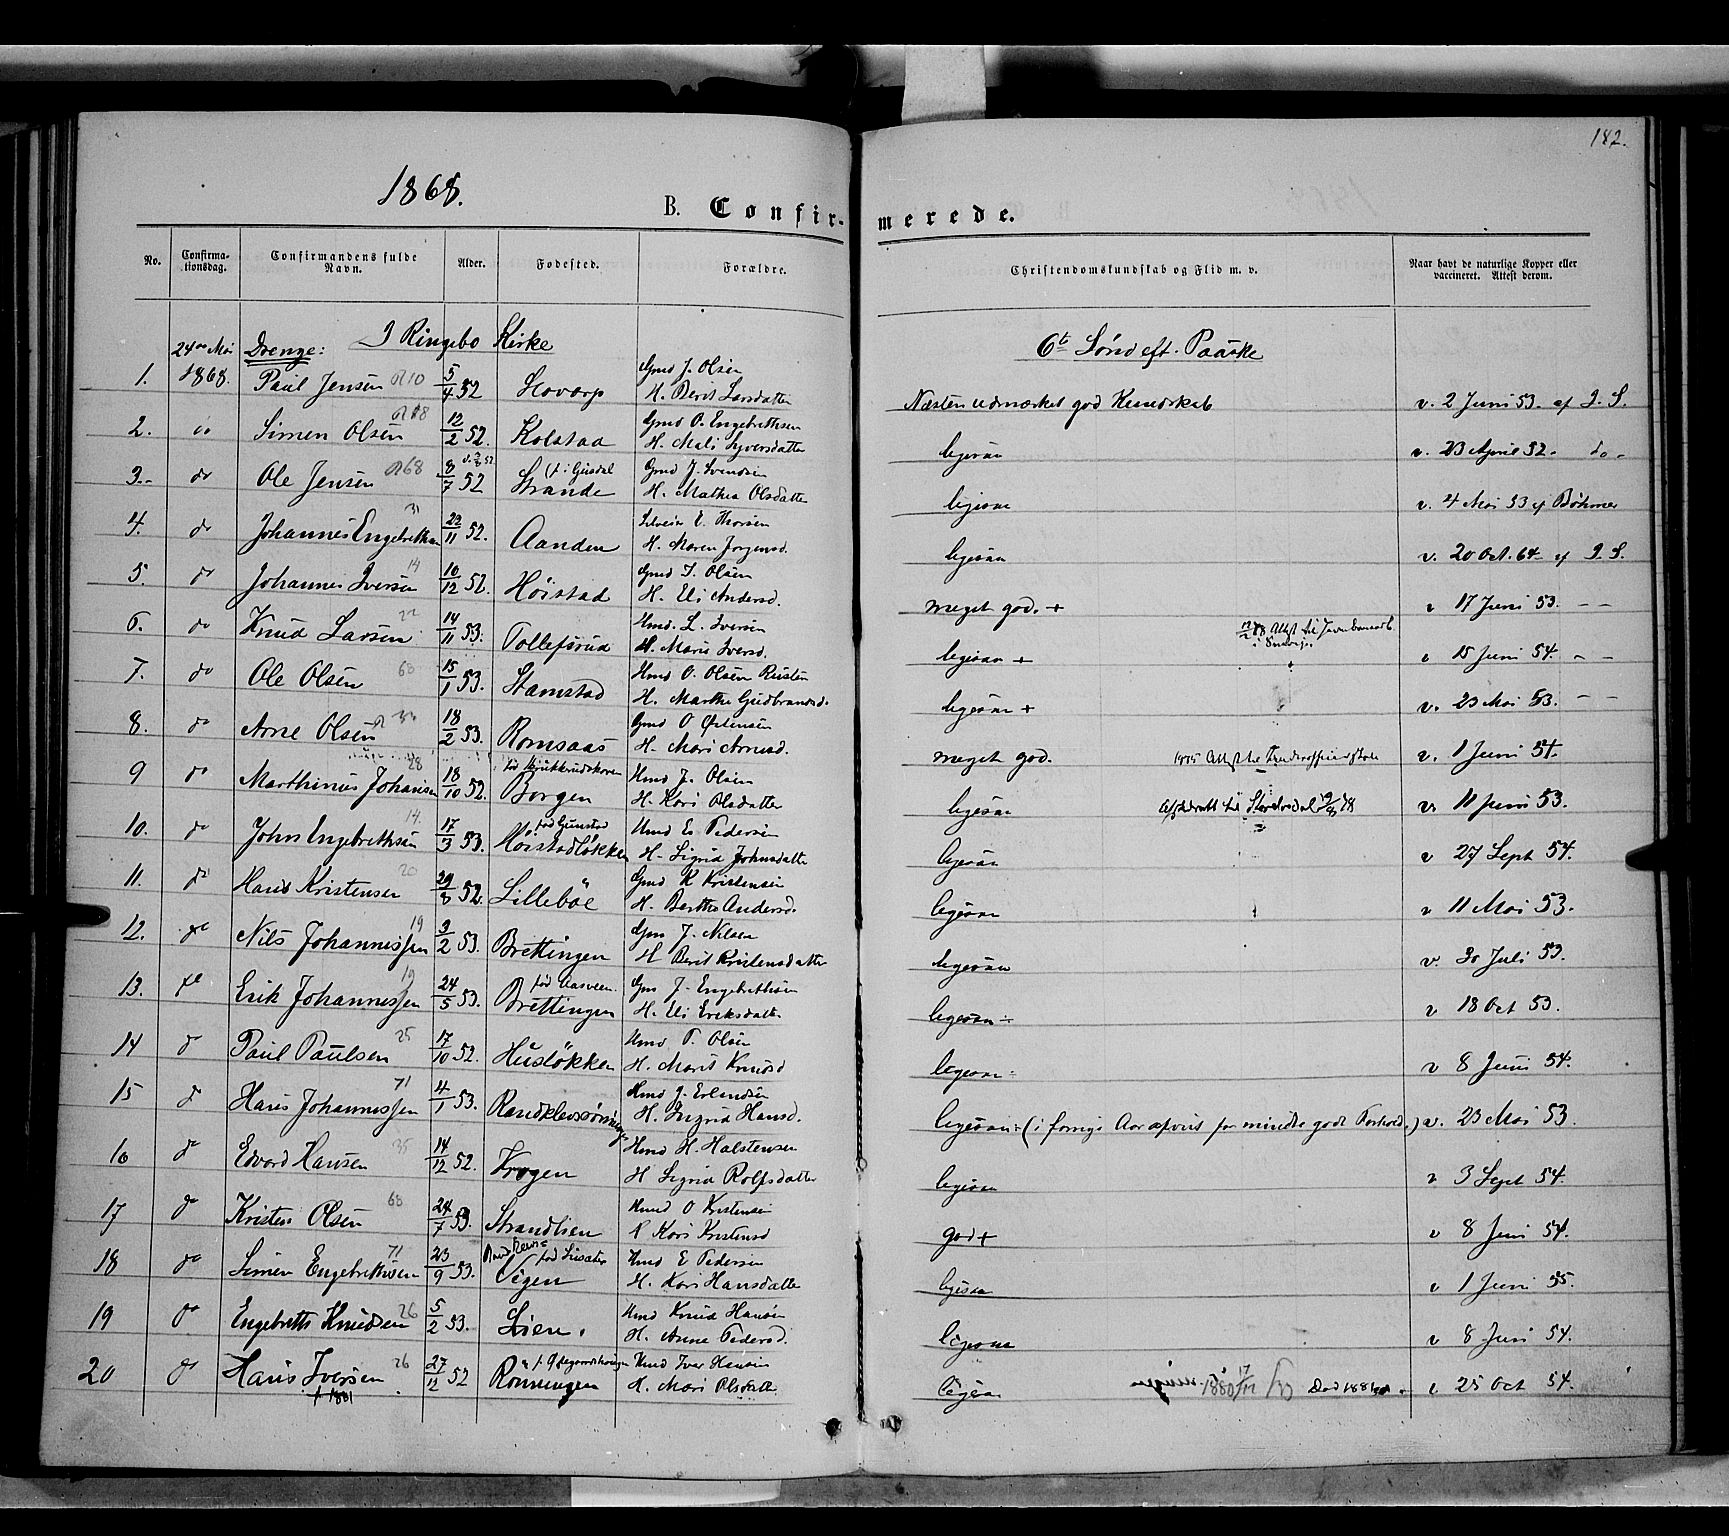 182.
1868.
B. Confirmerede.
No. Confirmationsdag. Confirmandens fulde Navn. Alder. Fødested. Forældre. Christendomskundskab og Flid m. v. Naar havt de naturlige Kopper eller vaccineret. Attest derom.
24de Mai 1868. Drenge: I Ringebo Kirke 6te Sønd eft. Paaske
1. Paul Jensen 5/4 52 Gmd J. Olsen
H. Berit Larsdatter Næsten udmærket god Kundskab v. 2 Juni 53. af J. S.
2. Simen Olsen 12/2 52. Kolstad Gmd O. Engebrethsen
H. Mali Syversdatter ligesaa v. 23 April 52. do
3. do Ole Jensen 68 8/7 52 Strande Gmd J. Svendsen
H. Mathea Olsdatter ligesaa v. 4 Mai 53 af Bøhmer
4. do Johannes Engebrethsen 31 22/11 52. Aanden E. Thorsen
H. Maren Jørgensd. ligesaa v. 20 Oct. 64 af J. S.
5. do Johannes Iversen 14 10/12 52. Høistad Gmd I. Olsen
H. Eli Andersd. meget god. + v 17 Juni 53. – –
6. do Knud Larsen 22 14/11 53. Tollefsrud Hmd. L. Iversen
H. Mari Iversd. ligesaa + v 15 Juni 54. – –
7. do Ole Olsen 68 15/1 53. Stamstad Hmd O. Olsen Rusten
H. Marthe Gudbrandsd. ligesaa + v. 23 Mai 53. – –
8. do Arne Olsen 18/2 53. Romsaas Gmd O Østensen
H. Mari Arnesd. meget god. v. 1 Juni 54.
9 do Marthinus Johansen 28 18/10 52. Borgen Hmd J. Olsen
H. Kari Olsdatter ligesaa v. 11 Juni 53.
10. do John Engebrethsen 14. 17/3 53. Høistadløkken Hmd E. Pedersen
H. Sigrid Johnsdatter ligesaa v 27 Sept 54.
11. do Hans Kristensen 20 29/8 52. Lillebøe Gmd K Kristensen
H. Berthe Andersd. ligesaa v 11 Mai 53.
12. do Nils Johannessen 19 3/2 53. Brettingen Gmd J. Nilsen
H Berit Kristensdatter ligesaa v. 30 Juli 53.
13. do Erik Johannessen 19 24/5 53. Brettingen Gmd J. Engebrethsen
H. Eli Eriksdatter ligesaa ÷ v 18 Oct 53.
14 do Paul Paulsen 25 17/10 52. Husløkken Hmd P. Olsen
H. Marit Knudsd ligesaa ÷ v 8 Juni 54.
15 do Hans Johannessen 71 4/1 53. Hmd J. Erlandsen
H. Ingrid Hansd. ligesaa ÷ (i forrige Aar afvist for mindre godt Forhold.) v. 23 Mai 53.
16 do Edvard Hansen 35 14/12 52. Krogen Hmd H. Halstensen
H Sigrid Rolfsdatter ligesaa v 3 Sept 54.
17 do Kristen Olsen 68 24/7 53. Strandlien Hmd O Kristensen
H Kari Kristensd god + v 8 Juni 54.
18 do Simen Engebrethsen 71 23/9 53. Hmd E Pedersen
H. Kari Hansdatter ligesaa v 1 Juni 55.
19 do Engebreth Knudsen 26 5/2 53. Lien. Hmd Knud Hansen
H. Anne Pedersd. ligesaa v 8 Juni 54.
20 do Hans Iversen 26 27/12 52 Rønningen Hmd Iver Hansen
† 1881 H. Mari Olsdatter ligesaa Død 1881 v 25 Oct 54.